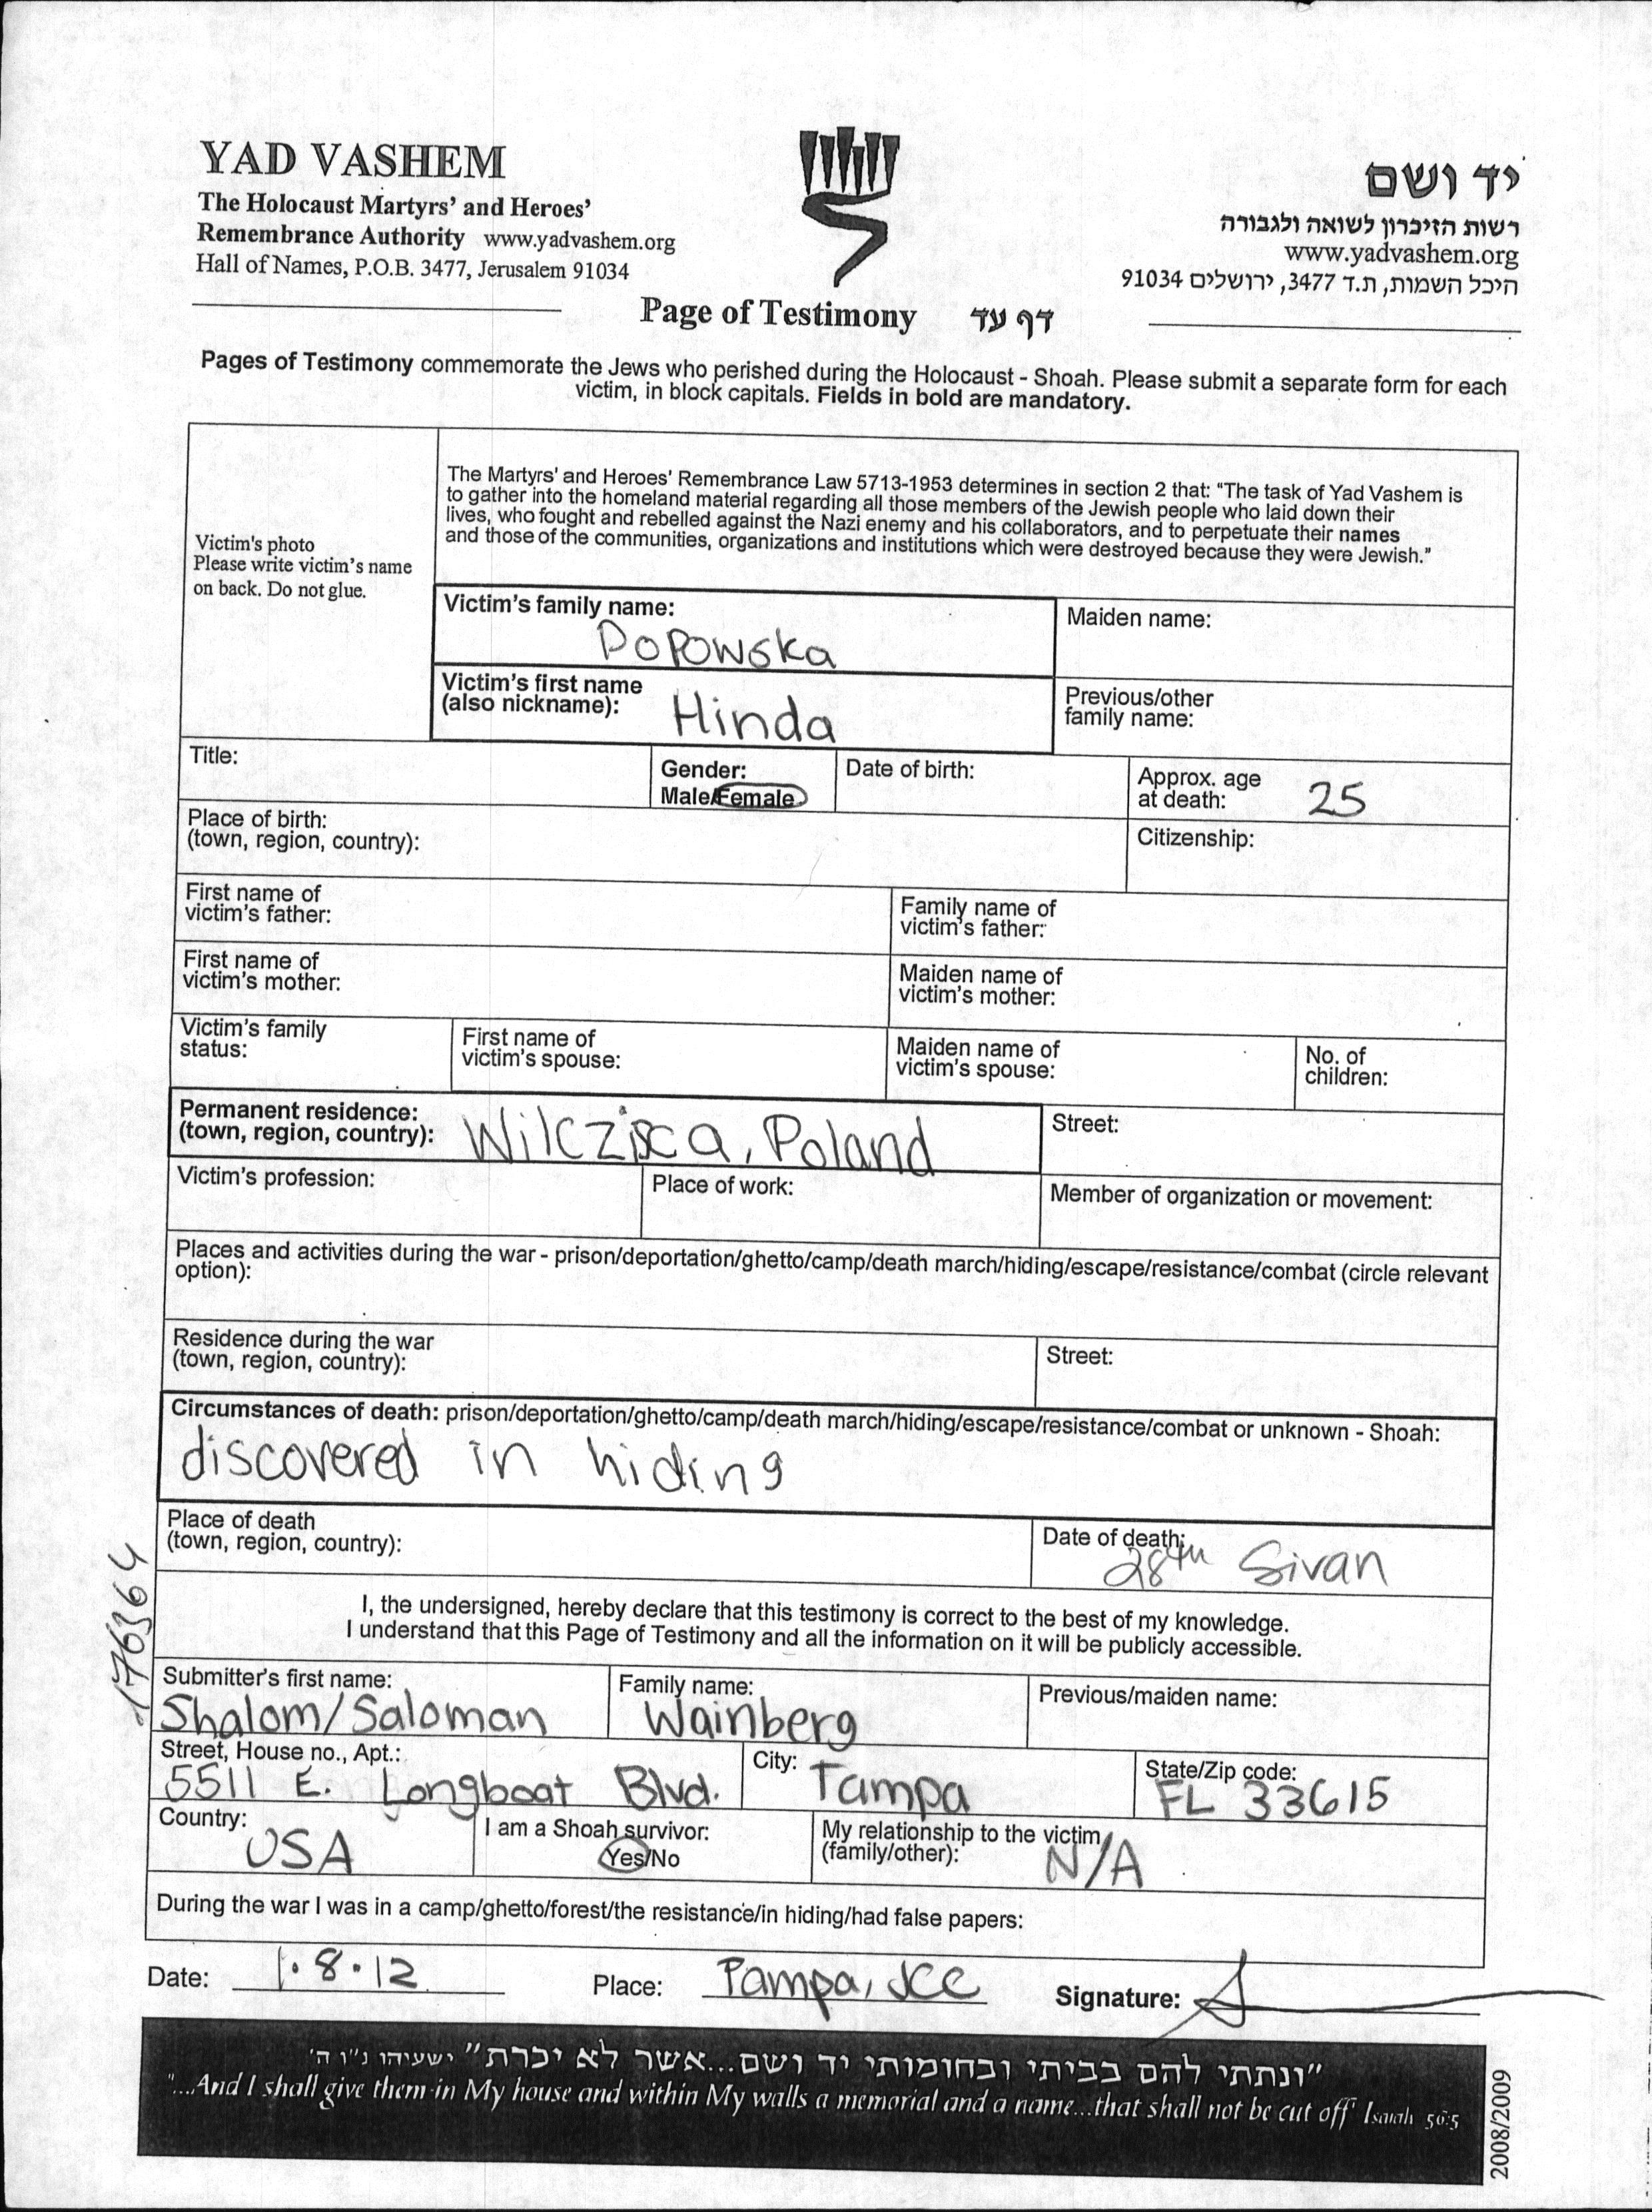 YAD VASHEM
The Holocaust Martyrs' and Heroes'
Remembrance Authority www.yadvashem.org
Hall of Names, P.O.B. 3477, Jerusalem 91034
יד ושם
רשות הזיכרון לשואה ולגבורה
www.yadvashem.org
היכל השמות, ת.ד 3477, ירושלים 91034
Page of Testimony דף עד
Pages of Testimony commemorate the Jews who perished during the Holocaust - Shoah. Please submit a separate form for each
victim, in block capitals. Fields in bold are mandatory.
Victim's photo
Please write victim's name
on back. Do not glue.
The Martyrs' and Heroes' Remembrance Law 5713-1953 determines in section 2 that: "The task of Yad Vashem is
to gather into the homeland material regarding all those members of the Jewish people who laid down their
lives, who fought and rebelled against the Nazi enemy and his collaborators, and to perpetuate their names
and those of the communities, organizations and institutions which were destroyed because they were Jewish."
Victim's family name:
Popowska
Maiden name:
Victim's first name
(also nickname): Hinda
Previous/other
family name:
Title:
Gender:
Male/Female
Date of birth:
Approx. age
at death: 25
Place of birth:
(town, region, country):
Citizenship:
First name of
victim's father:
Family name of
victim's father:
First name of
victim's mother:
Maiden name of
victim's mother:
Victim's family
status:
First name of
victim's spouse:
Maiden name of
victim's spouse:
No. of
children:
Permanent residence:
(town, region, country): Poland
Street:
Victim's profession:
Place of work:
Member of organization or movement:
Places and activities during the war - prison/deportation/ghetto/camp/death march/hiding/escape/resistance/combat (circle relevant
option):
Residence during the war
(town, region, country):
Street:
Circumstances of death: prison/deportation/ghetto/camp/death march/hiding/escape/resistance/combat or unknown - Shoah:
discovered in hiding
Place of death
(town, region, country):
Date of death:
28th Sivan
176364
I, the undersigned, hereby declare that this testimony is correct to the best of my knowledge.
I understand that this Page of Testimony and all the information on it will be publicly accessible.
Submitter's first name:
Shalom/Saloman
Family name:
Wainberg
Previous/maiden name:
Street, House no., Apt.:
5511 E. Longboat Blvd.
City: Tampa
State/Zip code:
FL 33615
Country:
USA
I am a Shoah survivor:
Yes/No
My relationship to the victim
(family/other): N/A
During the war I was in a camp/ghetto/forest/the resistance/in hiding/had false papers:
Date: 1.8.12 Place: Tampa, JCC Signature:
"ונתתי להם בביתי ובחומותי יד ושם...אשר לא יכרת" ישעיהו נ"ו ה'
"...And I shall give them in My house and within My walls a memorial and a name...that shall not be cut off" Isaiah 56:5
2008/2009